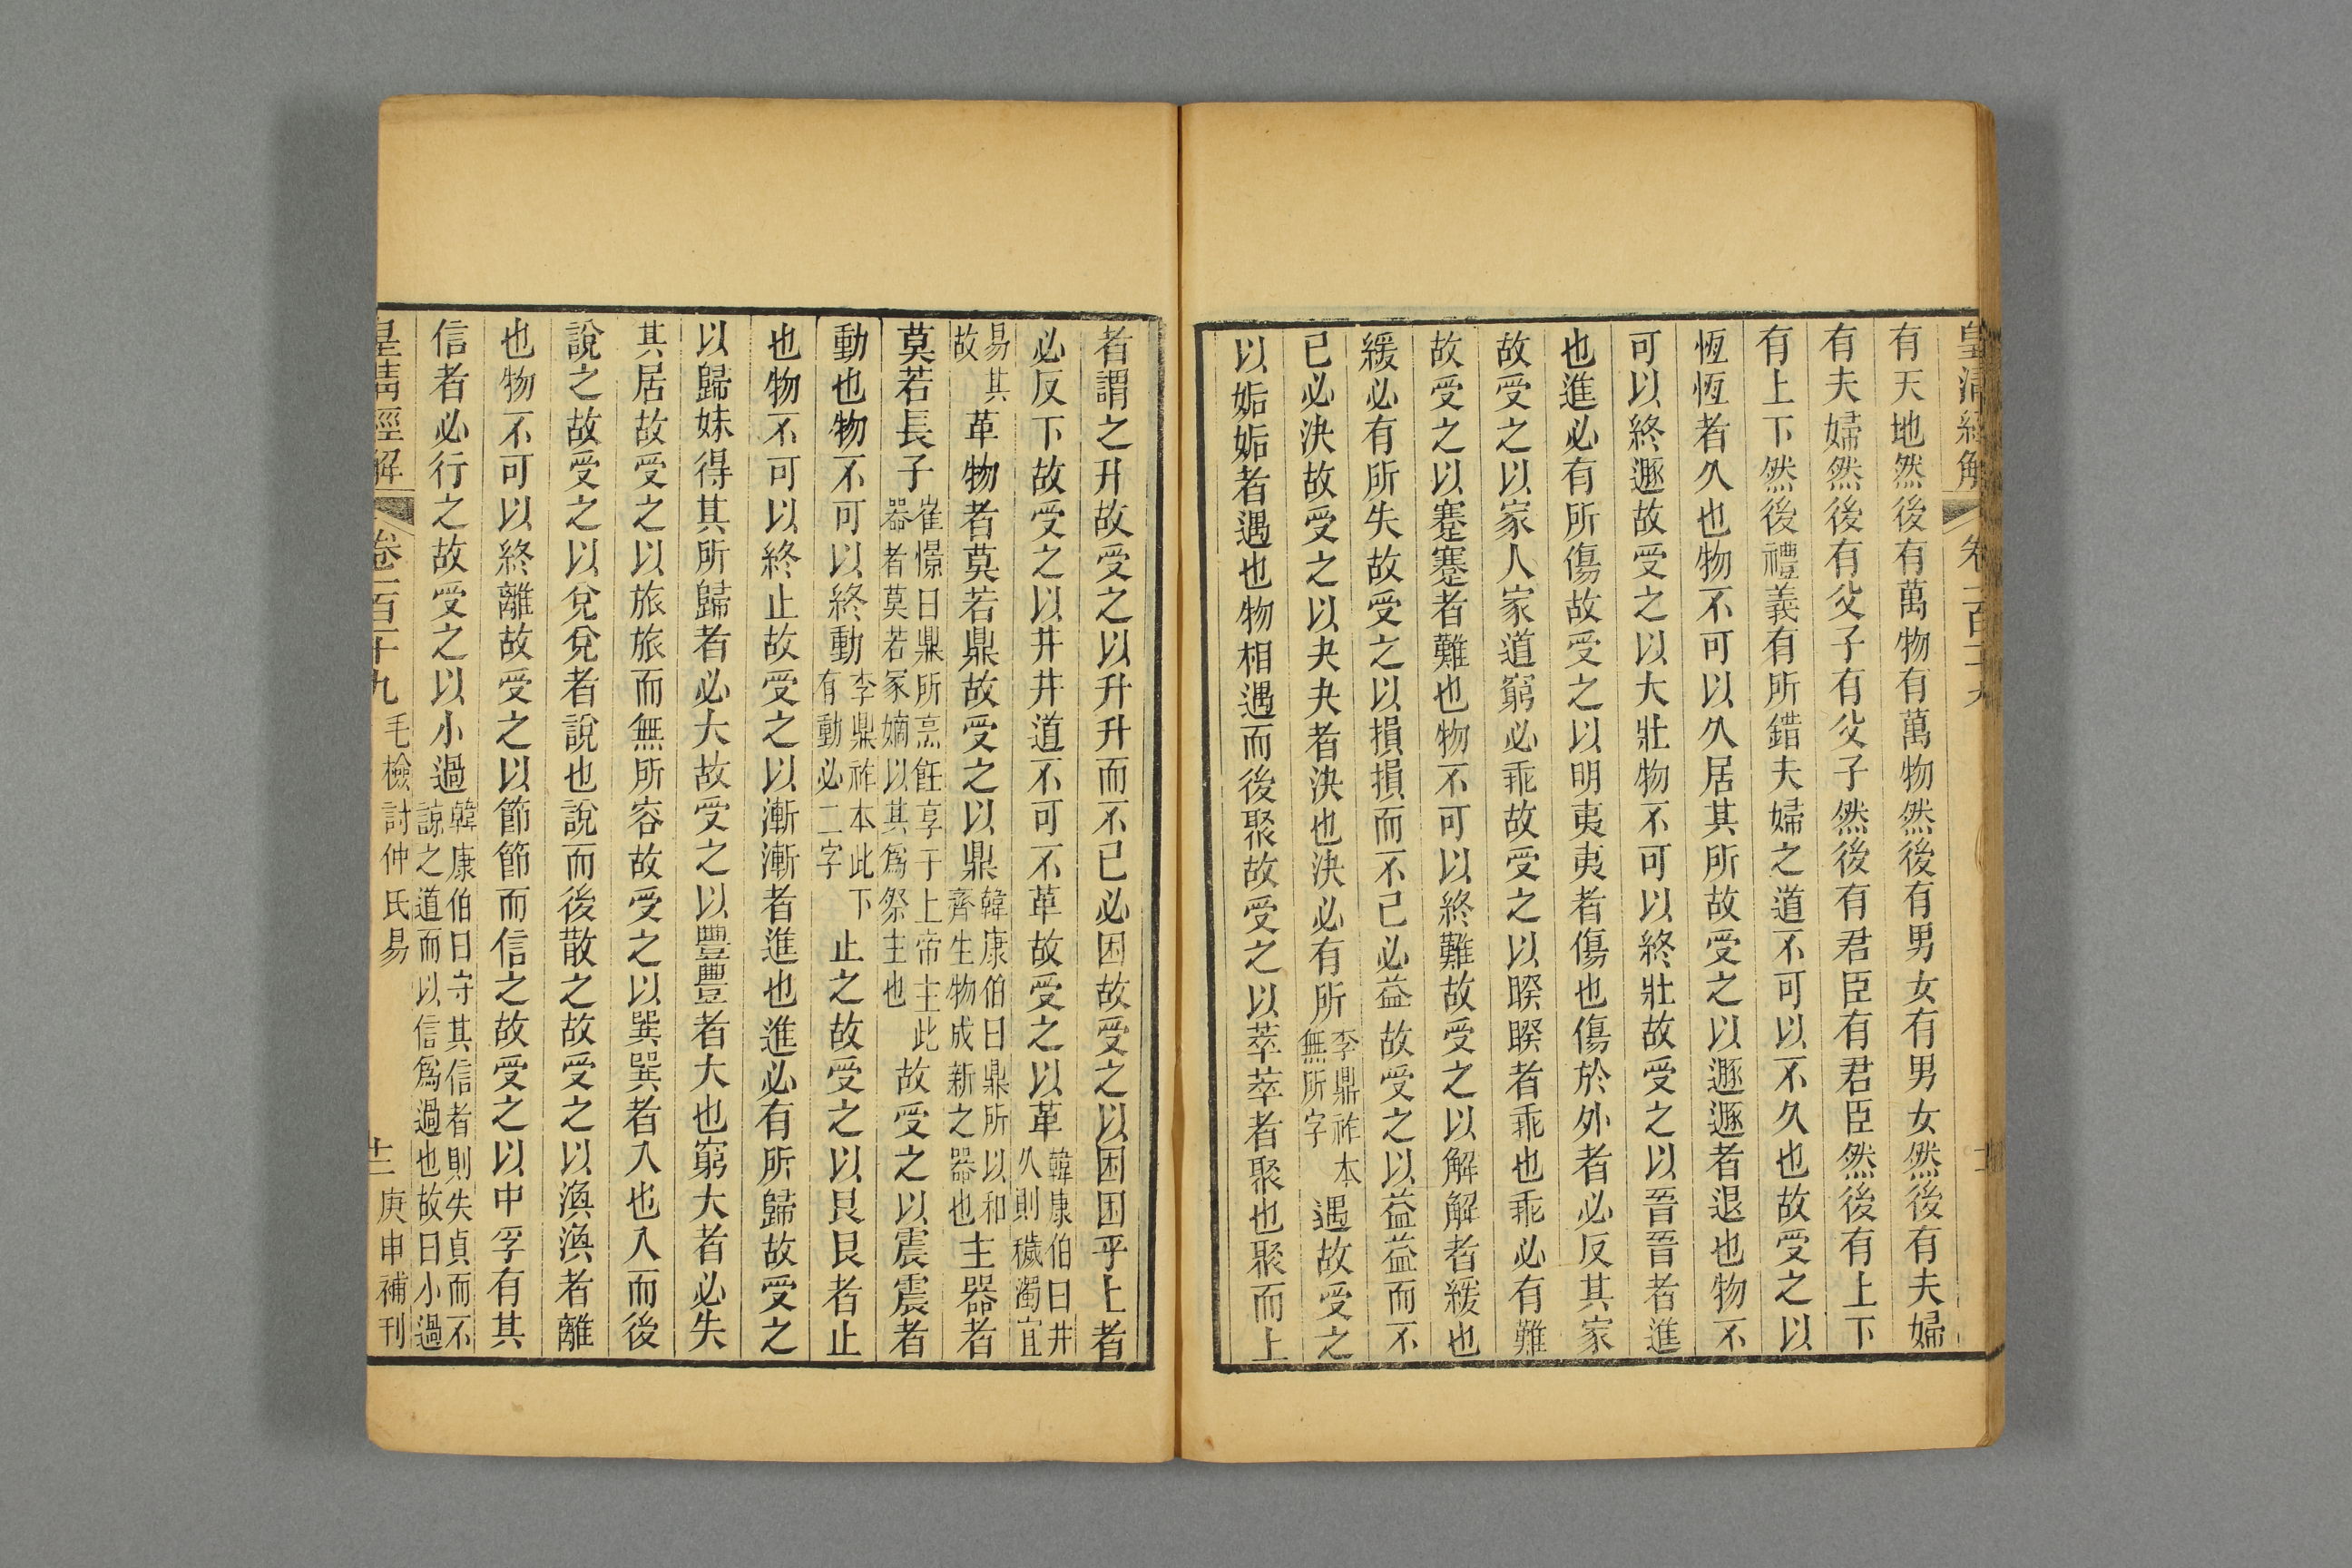 皇清經解 卷一百十九
有天地然後有萬物有萬物然後有男女有男女然後有夫婦
有夫婦然後有父子有父子然後有君臣有君臣然後有上下
有上下然後禮義有所錯夫婦之道不可以不久也故受之以
恆恆者久也物不可以久居其所故受之以遯遯者退也物不
可以終遯故受之以大壯物不可以終壯故受之以晉晉者進
也進必有所傷故受之以明夷夷者傷也傷於外者必反其家
故受之以家人家道窮必乖故受之以睽睽者乖也乖必有難
故受之以蹇蹇者難也物不可以終難故受之以解解者緩也
緩必有所失故受之以損損而不已必益故受之以益益而不
已必決故受之以夬夬者決也決必有所李鼎祚本無所字遇故受之
以姤姤者遇也物相遇而後聚故受之以萃萃者聚也聚而上
者謂之升故受之以升升而不已必困故受之以困困乎上者
必反下故受之以井井道不可不革故受之以革韓康伯曰井久則穢濁宜
易其故革物者莫若鼎故受之以鼎韓康伯曰鼎所以和齊生物成新之器也主器者
莫若長子崔憬曰鼎所烹飪享于上帝主此器者莫若冢嫡以其爲祭主也故受之以震震者
動也物不可以終動李鼎祚本此下有動必二字止之故受之以艮艮者止
也物不可以終止故受之以漸漸者進也進必有所歸故受之
以歸妹得其所歸者必大故受之以豐豐者大也窮大者必失
其居故受之以旅旅而無所容故受之以巽巽者入也入而後
說之故受之以兌兌者說也說而後散之故受之以渙渙者離
也物不可以終離故受之以節節而信之故受之以中孚有其
信者必行之故受之以小過韓康伯曰守其信者則失貞而不諒之道而以信爲過也故曰小過
皇清經解 卷一百十九 毛檢討仲氏易 十二 庚申補刊